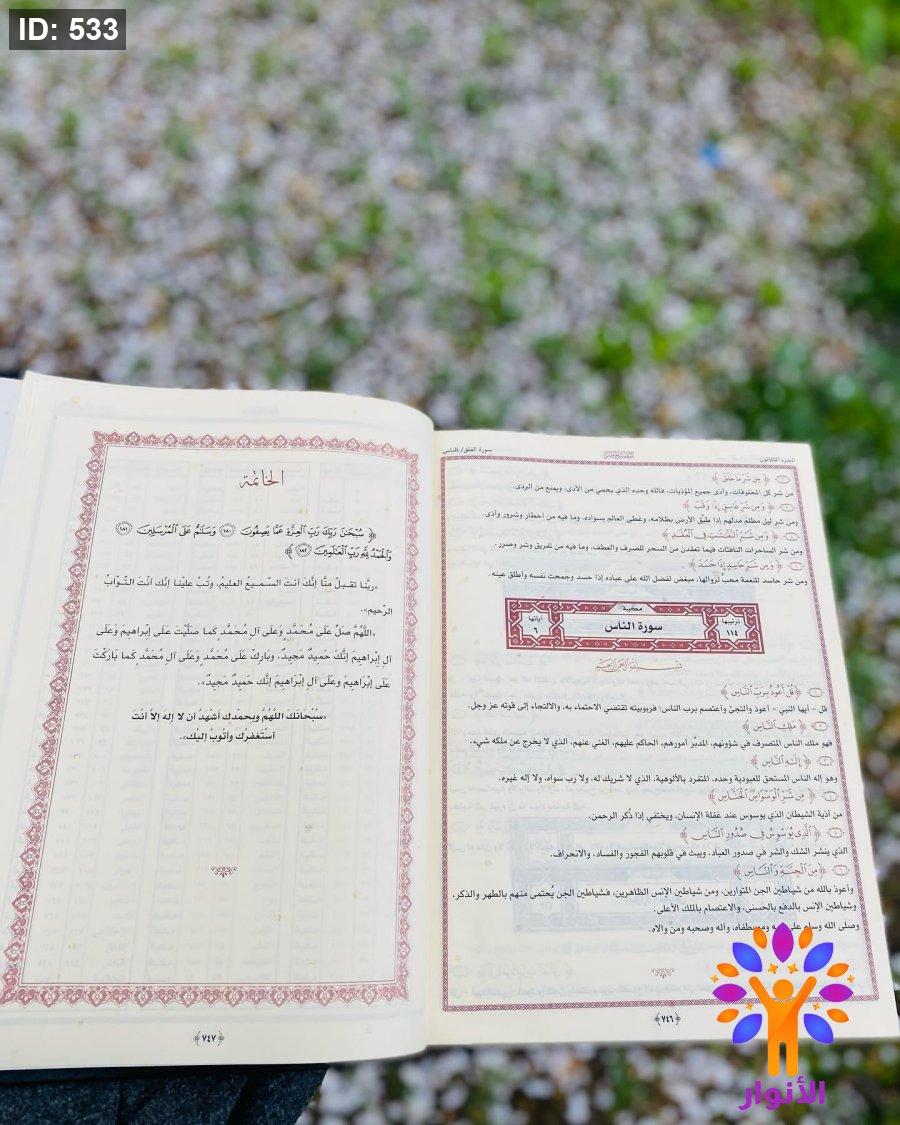 ID: 533
الجزء الثلاثون
سورة الفلق/ الناس
﴿ مِن شَرِّ مَا خَلَقَ ﴾
من شر كل المخلوقات، وأذى جميع المؤذيات، فالله وحده الذي يحمي من الأذى، ويمنع من الردى.
﴿ وَمِن شَرِّ غَاسِقٍ إِذَا وَقَبَ ﴾
ومن شر ليل مظلم مدلهم إذا طبَّق الأرض بظلامه، وغطى العالم بسواده، وما فيه من أخطار وشرور وأذى.
﴿ وَمِن شَرِّ النَّفَّٰثَٰتِ فِي الْعُقَدِ ﴾
ومن شر الساحرات النافثات فيما يعقدن من السحر للصرف والعطف، وما فيه من تفريق وشر وضرر.
﴿ وَمِن شَرِّ حَاسِدٍ إِذَا حَسَدَ ﴾
ومن شر حاسد للنعمة محب لزوالها، مبغض لفضل الله على عباده إذا حسد وجمحت نفسه وأطلق عينه.
ترتيبها ١١٤
مكية
سورة الناس
آياتها ٦
بِسْمِ اللَّهِ الرَّحْمَٰنِ الرَّحِيمِ
﴿ قُلْ أَعُوذُ بِرَبِّ النَّاسِ ﴾
قل - أيها النبي - أعوذ وألتجئ وأعتصم برب الناس؛ فربوبيته تقتضي الاحتماء به، والالتجاء إلى قوته عز وجل.
﴿ مَلِكِ النَّاسِ ﴾
فهو ملك الناس المتصرف في شؤونهم، المدبِّر أمورهم، الحاكم عليهم، الغني عنهم، الذي لا يخرج عن ملكه شيء.
﴿ إِلَٰهِ النَّاسِ ﴾
وهو إله الناس المستحق للعبودية وحده، المتفرد بالألوهية، الذي لا شريك له، ولا رب سواه، ولا إله غيره.
﴿ مِن شَرِّ الْوَسْوَاسِ الْخَنَّاسِ ﴾
من أذية الشيطان الذي يوسوس عند غفلة الإنسان، ويختفي إذا ذُكر الرحمن.
﴿ الَّذِي يُوَسْوِسُ فِي صُدُورِ النَّاسِ ﴾
الذي ينشر الشك والشر في صدور العباد، ويبث في قلوبهم الفجور والفساد، والانحراف.
﴿ مِنَ الْجِنَّةِ وَالنَّاسِ ﴾
وأعوذ بالله من شياطين الجن المتوارين، ومن شياطين الإنس الظاهرين، فشياطين الجن يُحتمى منهم بالطهر والذكر،
وشياطين الإنس بالدفع بالحسنى، والاعتصام بالملك الأعلى.
وصلى الله وسلم على ومصطفاه، وآله وصحبه ومن والاه.
﴿٧٤٦﴾
الخاتمة
﴿ سُبْحَٰنَ رَبِّكَ رَبِّ الْعِزَّةِ عَمَّا يَصِفُونَ ١٨٠ وَسَلَٰمٌ عَلَى الْمُرْسَلِينَ ١٨١
وَالْحَمْدُ لِلَّهِ رَبِّ الْعَٰلَمِينَ ١٨٢ ﴾
«ربَّنا تقبل منَّا إنَّكَ أنتَ السَّميعُ العليمُ، وتُبْ علينا إنَّك أنْتَ التَّوَّابُ
الرَّحيم».
«اللَّهُمَّ صَلِّ عَلَى مُحَمَّدٍ وعلى آلِ مُحَمَّدٍ كما صلَّيْتَ عَلَى إبْراهيمَ وَعَلَى
آلِ إِبْراهيمَ إنَّكَ حَميدٌ مَجيدٌ، وبَارِكْ عَلَى مُحَمَّدٍ وَعَلَى آلِ مُحَمَّدٍ كما بَارَكْتَ
عَلَى إبْراهيمَ وعَلَى آلِ إبْرَاهيمَ إنَّكَ حَميدٌ مَجيدٌ».
«سُبْحَانَكَ اللَّهُمَّ وبحمدك أَشْهَدُ أن لا إله إلاَّ أنْتَ
أَسْتَغْفِرُكَ وأتُوبُ إليْكَ».
﴿٧٤٧﴾
الأنوار